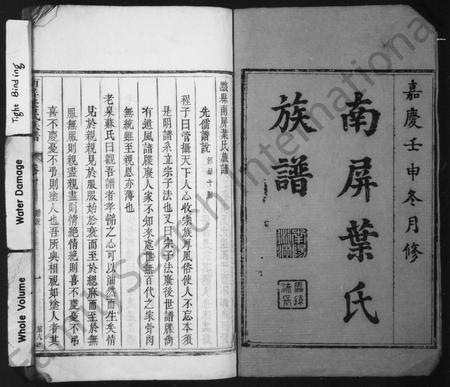 嘉慶壬申冬月修
南屏葉氏
族譜
黟縣南屏葉氏族譜
先儒譜說
程子曰管攝天下人心收宗族厚風俗使人不忘本須
是明譜系立宗子法也又曰宗子法廢後世譜牒尚
有遺風譜牒廢人家不知來處無百代之家骨肉
無統雖至親恩亦薄也
老泉蘇氏曰觀吾譜者孝悌之心可以油然而生矣情
見於親親見於服服始於衰而至於緦麻而至於無
服無服則親盡親盡則情盡情盡則喜不慶憂不弔
喜不慶憂不弔則塗人也吾所與相視如塗人者其
Tight Binding
Water Damage
Whole Volume
FamilySearch International